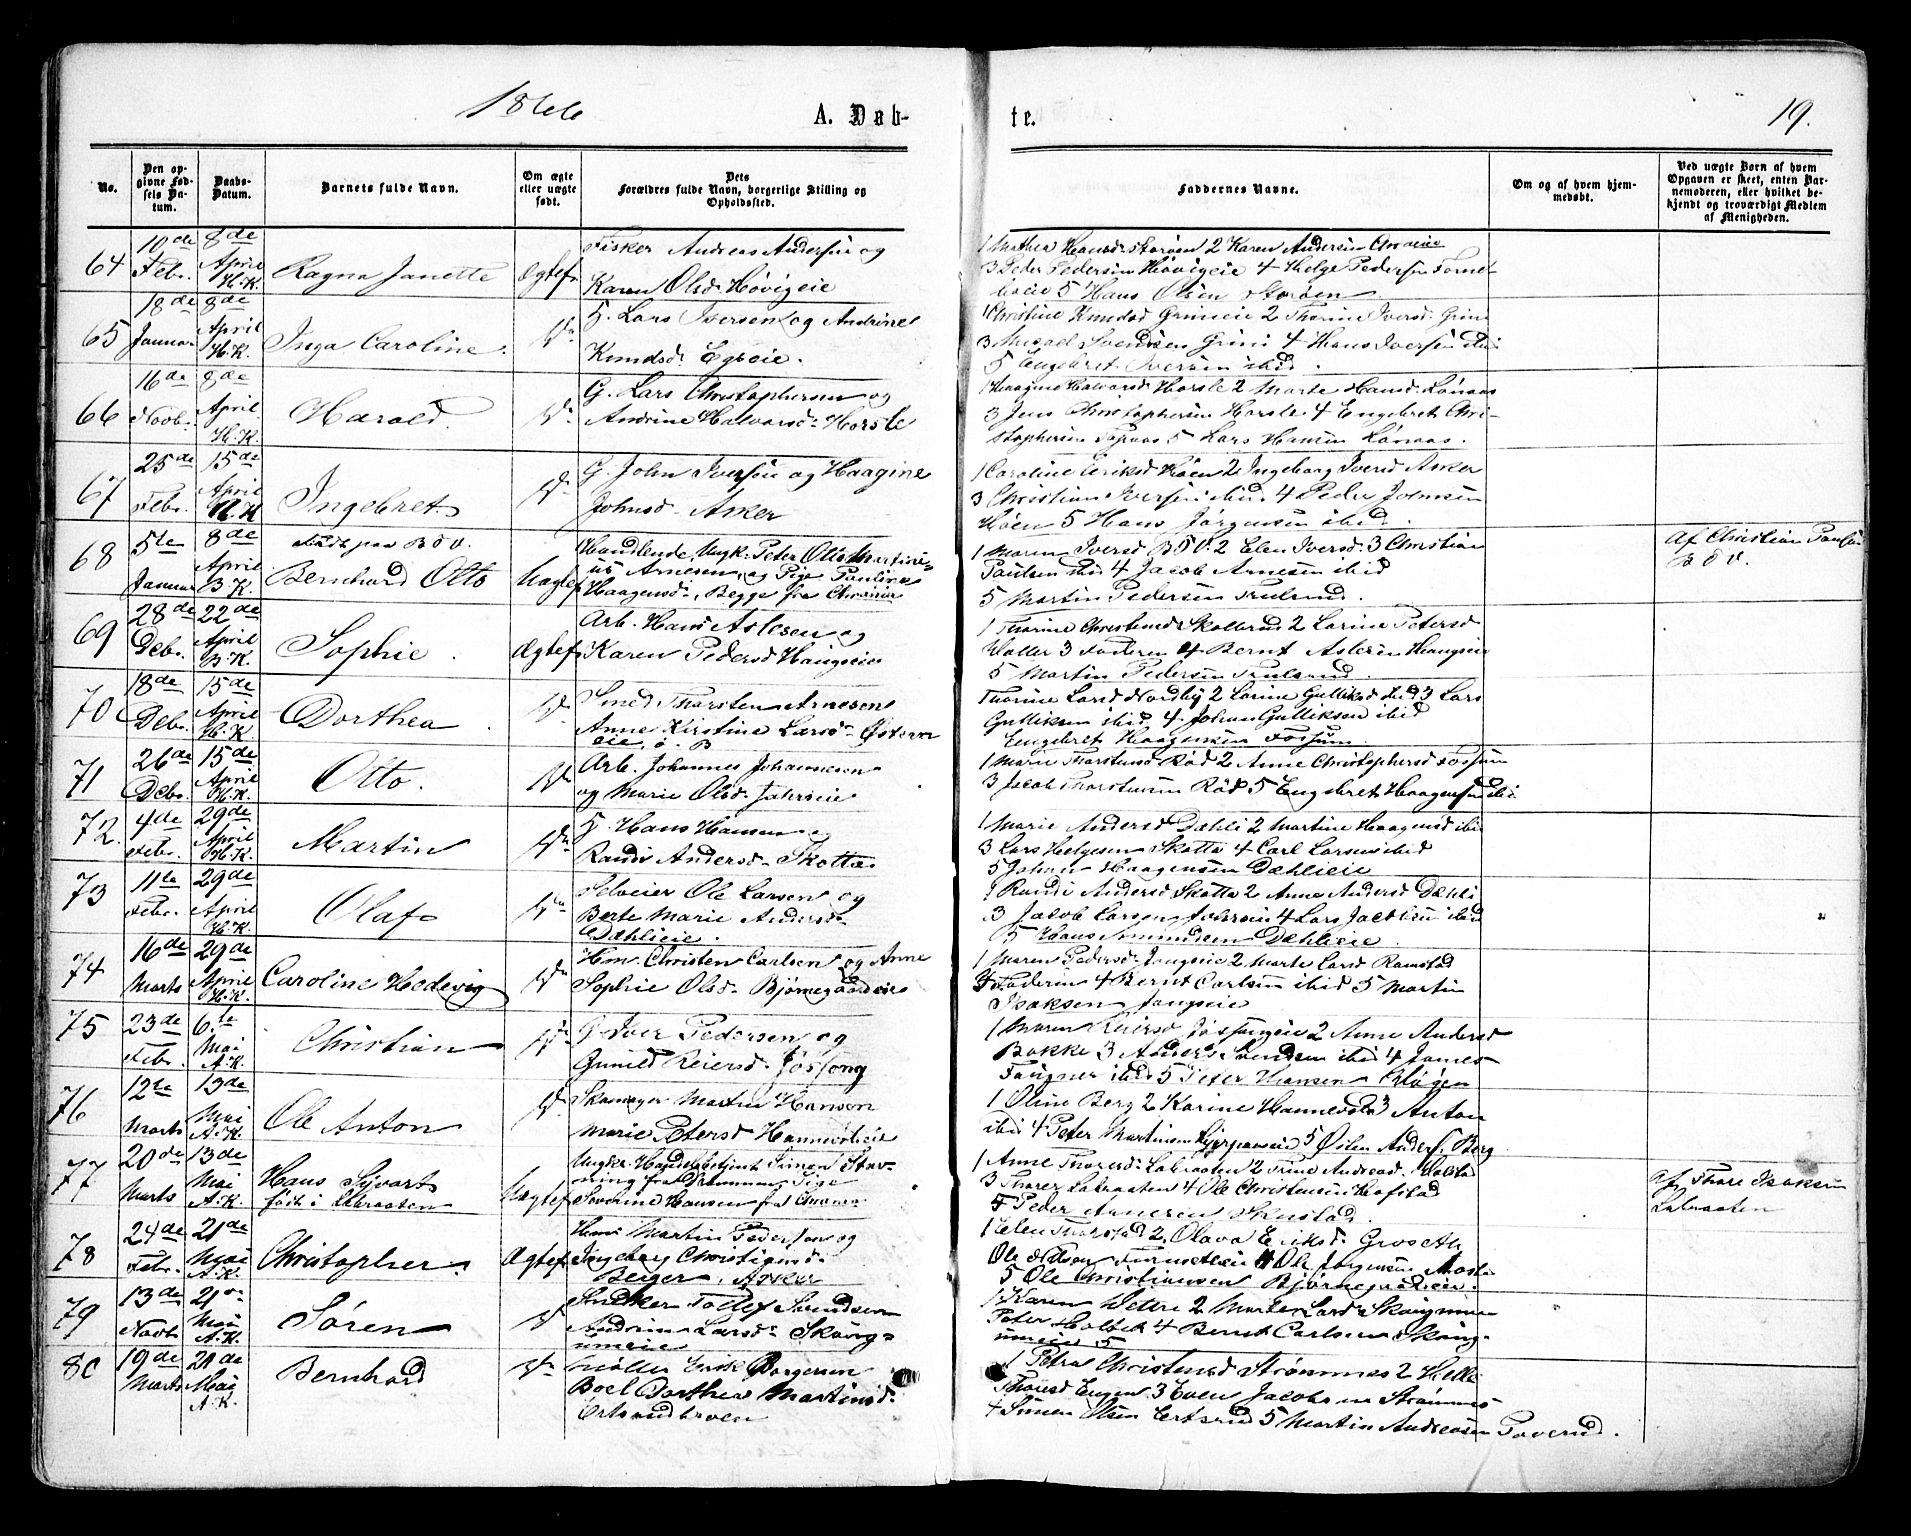 1866
A. Døb-
te.
19.
No.
Den op-
givne Fød-
sels Da-
tum.
Daabs-
Datum.
Barnets fulde Navn.
Om ægte
eller uægte
født.
Dets
Forældres fulde Navn, borgerlige Stilling og
Opholdssted.
Faddernes Navne.
Om og af hvem hjem-
medøbt.
Ved uægte Børn af hvem
Opgaven er skeet, enten Bar-
nemoderen, eller hvilket be-
kjendt og troværdigt Medlem
af Menigheden.
64
10de Febr.
8de April H.K.
Ragna Janette
Ægtef
Fisker Andreas Andersen og
Karen Olsd. Høvigeie
3 Peder Pedersen Høvigeie 4 Helge Pedersen
5 Hans Olsen Storøen
65
18de Januar
8de April H.K.
Inga Caroline
Do
G. Lars Iversen og Andrine
Knudsd.
1 Christine Knudsd Grinieie 2 Thorine Iversd. Grini
Svendsen Grini 4 Hans Iversen ibid
5 Engebret Iversen ibid.
66
16de Novb.
8de April H.K.
Harald
Do
G. Lars Christophersen og
Andrine Halvorsd. Horsle
1 Haagine Halvorsd Horsle 2 Marte Hansd. Lønaas
3 Jens Christophersen Horsle 4 Engebret Chri-
stophersen 5 Lars Hansen Lønaas.
67
25de Febr.
15de April H.K
Ingebret
Do
G. John Iversen og Haagine
Johnsd. Asker
1 Caroline Eriksd Høen 2 Ingeborg Iversd Asker
3 Christian Iversen ibid 4 Peder Johnsen
Høen 5 Hans Jørgensen ibid.
68
5te Januar
8de April B.K.
født paa Bøv.
Bernhard Otto
Uægtef
Handlende Ungk. Peter Otto Martini-
us Arnesen, og Pige Pauline
Haagensd., Begge fra Chrania
1 Maren Iversd Bøv. 2 Elen Iversd. 3 Christian
Paulsen ibid 4 Jacob Arnesen ibid
5 Martin Pedersen
af Christian Paulsen
Bøv.
69
28de Debr.
22de April B.K.
Sophie.
Ægtef
Arb. Hans Aslesen og
Karen Pedersd Haugseie
1 Thorine 2 Larine Petersd
3 Faderen 4 Bernt Aslesen Haugseie
5 Martin Pedersen
70
18de Debr.
15de April H.K
Dorthea
Do
Smed Thorsten Arnesen
Anne Kirstine Larsd. Østern
eie ø. B
Thorine Larsd Nordby 2 Larine Gulliksd ibid 3 Lars
Gulliksen ibid. 4. Johan Gulliksen ibid
Engebret Haagensen Fossum.
71
26de Debr.
15de April H.K.
Otto.
Do
Arb. Johannes Johannesen
og Marie Olsd.
1 Marie Thorstensd Rød 2 Anne Christophersd Fossum
3 Jacob Thorstensen Rød 5 Engebret Haagensen ibid
72.
4de Febr.
29de April H.K.
Martin
Do
G. Hans Hansen og
Randi Andersd. Skotta
1 Marie Andersd Dæhli 2 Martine Haagensd ibid
3 Lars Helgesen Skotta 4 Carl Larsen ibid
5 Johan Haagensen Dæhlieie
73
11te Febr.
29de April H.K.
Olaf
Do
Selveier Ole Larsen og
Berte Marie Andersd.
Dæhlieie.
1 Randi Andersd Skotta 2 Anne Andersd Dæhli
3 Jacob Larsen 4 Lars Jacobsen ibid
5 Hans Dæhlieie.
74
16de Marts
29de April H.K.
Caroline Hedevig
Do
Hm. Christen Carlsen og Anne
Sophie Olsd. Bjørnegaardeie
1 Maren Pedersd. 2 Marte Larsd Ramstad
3 Faderen 4 Bernt Carlsen ibid 5 Martin
Isaksen
75
23de Febr.
6.te Mai A.K.
Christian
Do
G Iver Pedersen og
Gunild Reiersd. Jøssong
1 Maren Reiersd 2 Anne Andersd
Bakke 3 Anders Svendsen ibid 4 James
ibid 5 Peter Hansen
76
12te Marts
13de Mai A.K.
Ole Anton
Do
Skomager Martin Hansen
Marie Petersd
1 Oline Berg 2 Karine 3 Anton
ibid 4 Peter Martinsen 5 Østen Anders. Berg
77
20de Marts
13de Mai A.K.
Hans Syvart
født i Labraaten
Uægtef
Simon
fra Drammen Pige
Severine Hansen fra Chrania
1 Anne Thoresd. Labraaten 2 Trine Andreasd.
3 Thorer Labraaten 4 Ole Christensen Hofstad
5 Peder
af Thore Isaksen
Labraaten
78
24de Febr.
21de Mai A.K.
Christopher.
Ægtef
Martin Pedersen og
Ingeborg Christiansd.
Berger, Asker
1 Elen 2. Olava Eriksd.
4 Ole Jørgensen
5 Ole Christiansen
79
13de Novb
21de Mai A.K.
Søren
Do
Snedker Tollef Svendsen
Andrine Larsd.
1 Karen 2 Marte Larsd
Peter 4 Bernt Carlsen
5
80
19de Marts
21de Mai A.K.
Bernhard
Do
Møller Borgersen
Boel Dorthea Martinsd.
1 Petra Christensd Strømmes 2 Helle
Thoresd 3 Even Jacobsen
4 Simen Olsen 5 Martin Andreasen